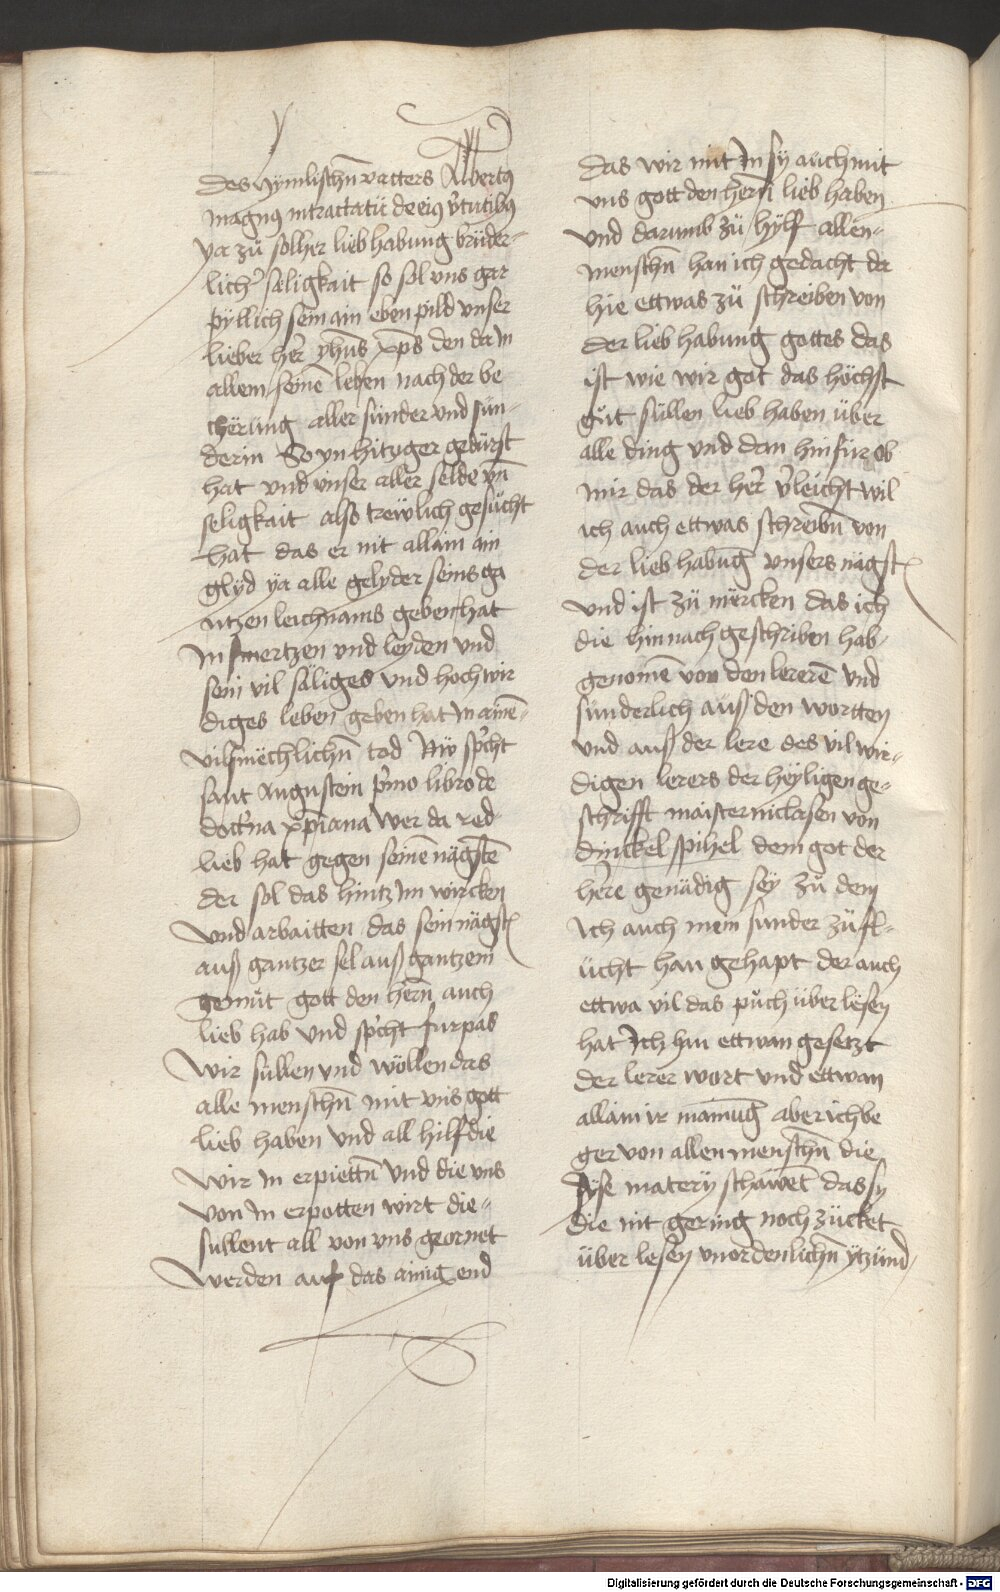 des hymlischn̄ vatters Albertus
magnus in tractatū de eius v̓tutibus
ya zů solher lieb habung brüder-
lich̓ säligkait so sol uns gar
pyllich sein ain eben pild unser
lieber her̓ yh̄us xp̄s den da in
allem seinē leben nach der be
cherüng aller sünder und sün-
derin So yn hitziger gedürst
hat und unser aller selde vn̄
seligkait also trewlich gesücht
hat das er nit allain ain
glyd ya alle gelyder seins ga
ntzen leichnams geben hat
in smertzen und leyden und
sein vil säliges und hochwir
diges leben geben hat in ainē-
vil smëchlichn̄ tod Nů sp̓cht
sant Augustein p̓mo libro de
doct̓na xp̄iana Wer da red
lieb hat gegen seinē nägstē
der sol das hintz im wircken
und arbaitten das sein nägst̓
auß gantzer sel auß gantzem
gemůt gott den hern̄ auch
lieb hab und sp̓cht furpas
Wir süllen und wöllen das
alle menschn̄ mit uns gott
lieb haben und all hilf die
wir in erpiettn̄ und die uns
von in erpotten wirt die-
sullent all von uns geornet
werden auf das ainig end
das wir mit in sy auch mit
uns gott den hern̄ lieb haben
und darumb zů hylf allen-
menschn̄ han ich gedacht da
hie ettwas zů schreiben von
der lieb habung gottes das
ist wie wir got das höchst
gůt süllen lieb haben über
alle ding und dan hinfür ob
mir das der her̓ v̓leicht wil
ich auch ettwas schreibn̄ von
der lieb habūg unsers nägst̓
und ist zů mërcken das ich
die hinnach geschriben hab
genomē von den lererē und
sünderlich auß den wortten
und auß der lere des vil wir-
digen lerers der heyligen ge-
schrifft maister niclasen von
dinckelspihel dem got der
h̓re genädig sey zů dem
ich auch mein sunder zůfl-
ücht han gehapt der auch
ettwa vil das půch über lesen
hat Ich hin ettwan gesetzt
der lerer wort und ettwan
allain ir mainūg aber ich be
ger von allen menschn̄ die
dyse matery schawēt das sy
die nit gering noch zücket
über lesen unordenlichn̄ ytzund
Digitalisierung gefördert durch die Deutsche Forschungsgemeinschaft - DFG